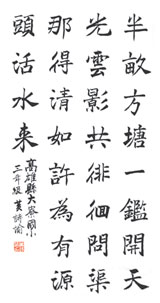 半畝方塘一鑑開天
光雲影共徘徊問渠
那得清如許為有源
頭活水来
高雄縣大寮國小
三年級黃詩涵